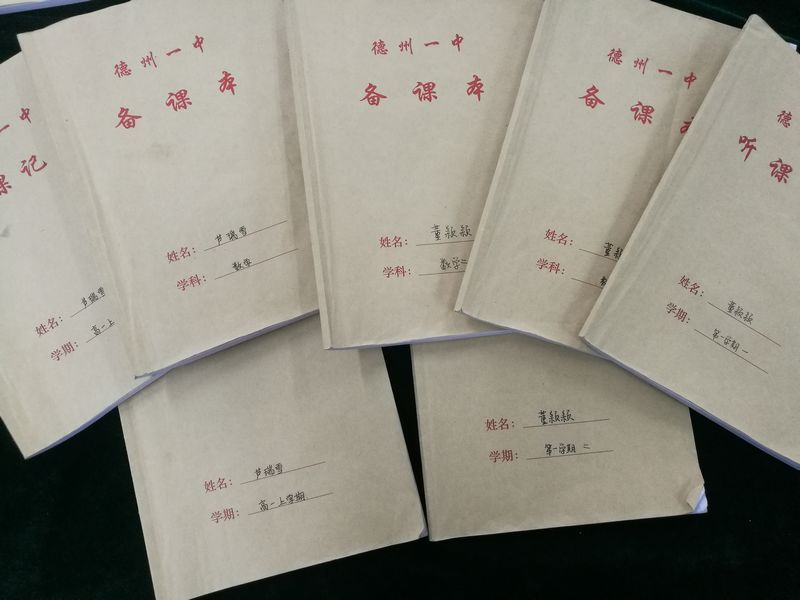 一中
课记
姓名：芦瑞雪
学期：高一上
德州一中
备课本
姓名：芦瑞雪
学科：数学
德州一中
备课本
姓名：董颖颖
学科：数学二
德州一中
备课
姓名：董
学科：
德
听课
姓名：董颖颖
学期：第一学期一
姓名：芦瑞雪
学期：高一上学期
姓名：董颖颖
学期：第一学期二